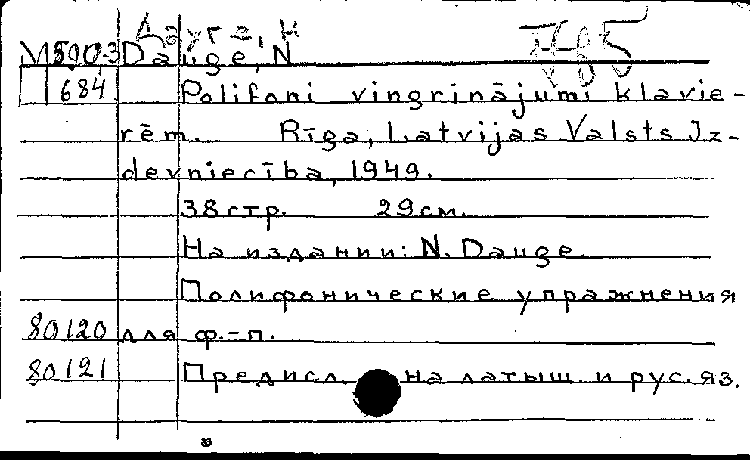 Дауге, Н
М5003 Dauge, N
684 Polifoni vingrinājumi klavie-
rēm. Rīga, Latvijas Valsts Iz-
devniecība, 1949.
38 стр. 29 см.
На издании: N. Dauge
Полифонические упражнения
80120 для ф.-п.
80121 Предисл. на латыш. и рус. яз.